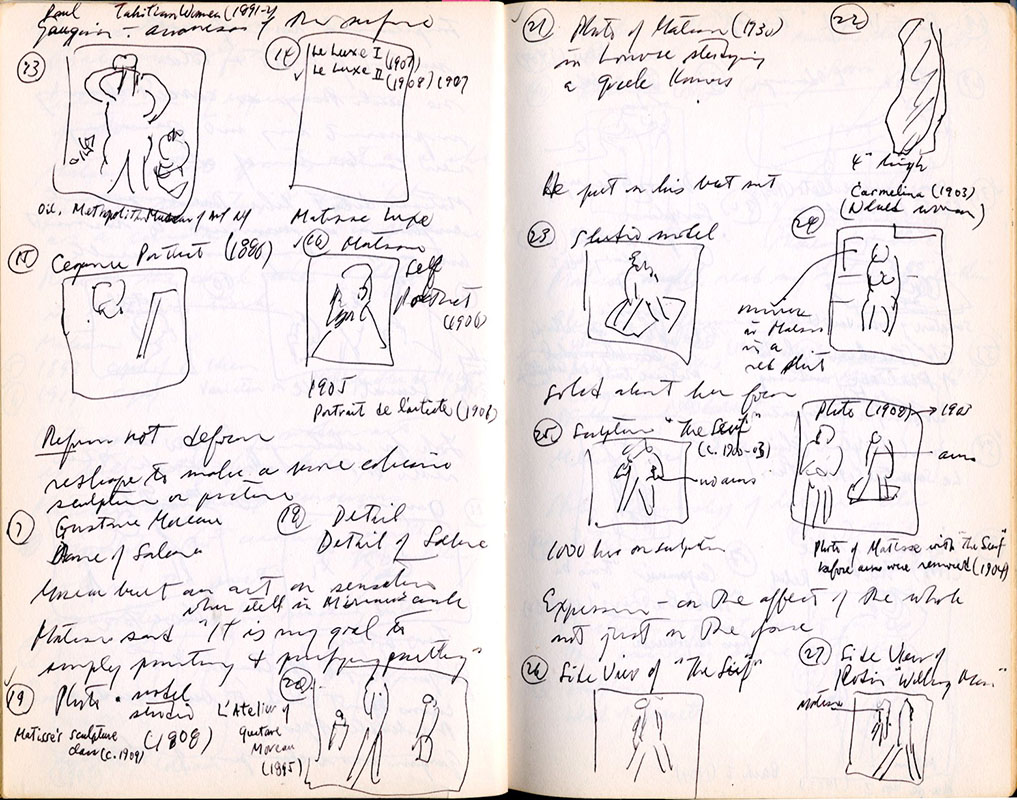 Paul Tahitian Women (1891-2)
Gauguin - awareness of the surface
13
14
Le Luxe I (1907)
Le Luxe II (1908) 1907
Oil, Metropolitan Museum of Art NY
Matisse Luxe
15 Cezanne Portrait (1886)
16 Matisse
Self
Portrait
(1906)
1905
Portrait de l'artiste (1906)
Reform not deform
reshape to make a more cohesive
sculpture or picture
7 Gustave Moreau
Dance of Salome
18 Detail
Detail of Salome
Moreau built an art on sensation
when still in Moreau's
Matisse said "It is my goal to
simply painting & purifying painting"
19 Photo - model
studio
Matisse's sculpture
class (c. 1909)
(1908)
20
L'Atelier of
Gustave
Moreau
(1895)
21 Photo of Matisse (1930)
in Louvre studying
a Greek Kouros
He put on his best suit
22
4" high
Carmelina (1903)
(Nude woman)
23 Studio model
24
mirror
is Matisse
in a
red shirt
solid about her form
25 Sculpture "The Serf"
(c. 1900-03)
no arms
1000 hrs on sculpture
Photo (1908) 1903
arms
Photo of Matisse with "The Serf"
before arms were removed (1904)
Expression - on the affect of the whole
not just on the face
26 Side View of "The Serf"
27 Side View of
Rodin "Walking Man"
Matisse